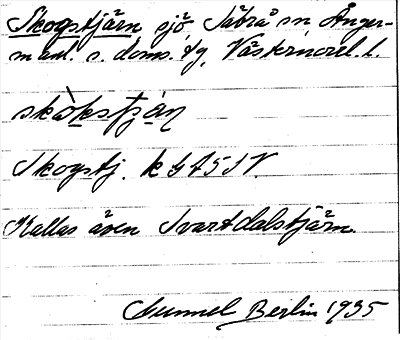 Skogstjärn sjö Sätrå sn Ånger-
manl. s. doms. tg, Västernorrl. l.
skò̀kstjạ̈ṇ
Skogstj. k G A 5 S V.
Kallas även Svartdalstjärn.
Nunnel Berlin 1935